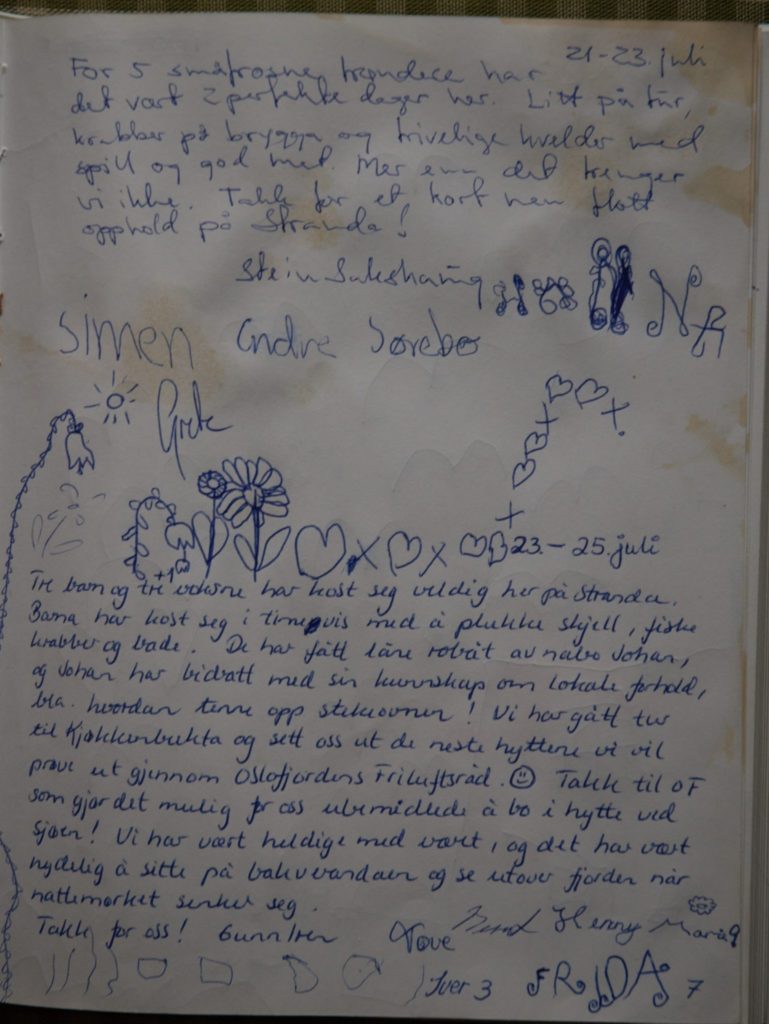 21-23. juli
For 5 småfrosne trøndere har
det vært 2 perfekte dager her. Litt på tur,
krabber på brygga og trivelige kvelder med
spill og god mat. Mer enn det trenger
vi ikke. Takk for et kort men flott
opphold på Stranda!
Stein
Simen Endre Sørebø
Grete
23. – 25. juli
Tre barn og tre +1 voksne har kost seg veldig her på Stranda.
Barna har kost seg i timesvis med å plukke skjell, fiske
krabber og bade. De har fått låne robåt av nabo Johan,
og Johan har bidratt med sin kunnskap om lokale forhold,
bla. hvordan tenne opp stekeovnen! Vi har gått tur
til Kjøkkenbukta og sett oss ut de neste hyttene vi vil
prøve ut gjennom Oslofjordens Friluftsråd. Takk til OF
som gjør det mulig for oss ubemidlede å bo i hytte ved
sjøen! Vi har vært heldige med været, og det har vært
nydelig å sitte på bakverandaen og se utover fjorden når
nattemørket senker seg.
Takk for oss! Gunn Iren Tove Henny Maria 9
Iver 3 FRIDA 7